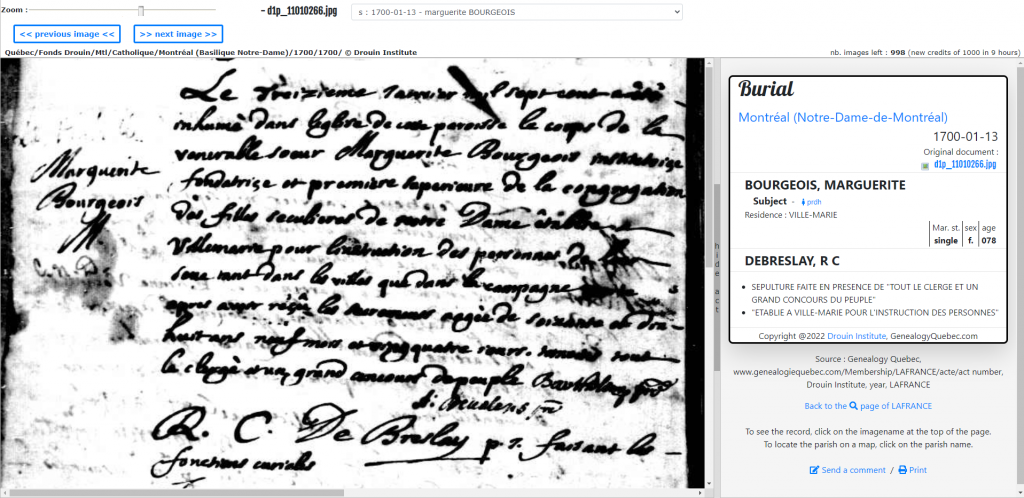 Zoom :
- d1p_11010266.jpg
s : 1700-01-13 - marguerite BOURGEOIS
<< previous image <<
>> next image >>
Québec/Fonds Drouin/Mtl/Catholique/Montréal (Basilique Notre-Dame)/1700/1700/ © Drouin Institute
nb. images left : 998 (new credits of 1000 in 9 hours)
Le treizieme Janvier mil sept cent a été
inhumé dans l'église de cette paroisse le corps de la
venerable soeur Marguerite Bourgeois institutrice
fondatrice et premiere superieure de la congregation
des filles seculieres de nôtre Dame établie
Villemarie pour l'instruction des personnes de leur
sexe tant dans les villes que dans la campagne
apres avoir reçû les sacremens aagée de soixante et dix-
huit ans neuf mois et vingt quatre jours. tout
le clergé et un grand concours de peuple Barthelemy
R. C. De Breslay p.s. faisant les
fonctions curiales
Marguerite
Bourgeois
hide act
Burial
Montréal (Notre-Dame-de-Montréal)
1700-01-13
Original document :
d1p_11010266.jpg
BOURGEOIS, MARGUERITE
Subject - prdh
Residence : VILLE-MARIE
Mar. st. sex age
single f. 078
DEBRESLAY, R C
SEPULTURE FAITE EN PRESENCE DE "TOUT LE CLERGE ET UN
GRAND CONCOURS DU PEUPLE"
"ETABLIE A VILLE-MARIE POUR L'INSTRUCTION DES PERSONNES"
Copyright @2022 Drouin Institute, GenealogyQuebec.com
Source : Genealogy Quebec,
www.genealogiequebec.com/Membership/LAFRANCE/acte/act number,
Drouin Institute, year, LAFRANCE
Back to the page of LAFRANCE
To see the record, click on the imagename at the top of the page.
To locate the parish on a map, click on the parish name.
Send a comment / Print